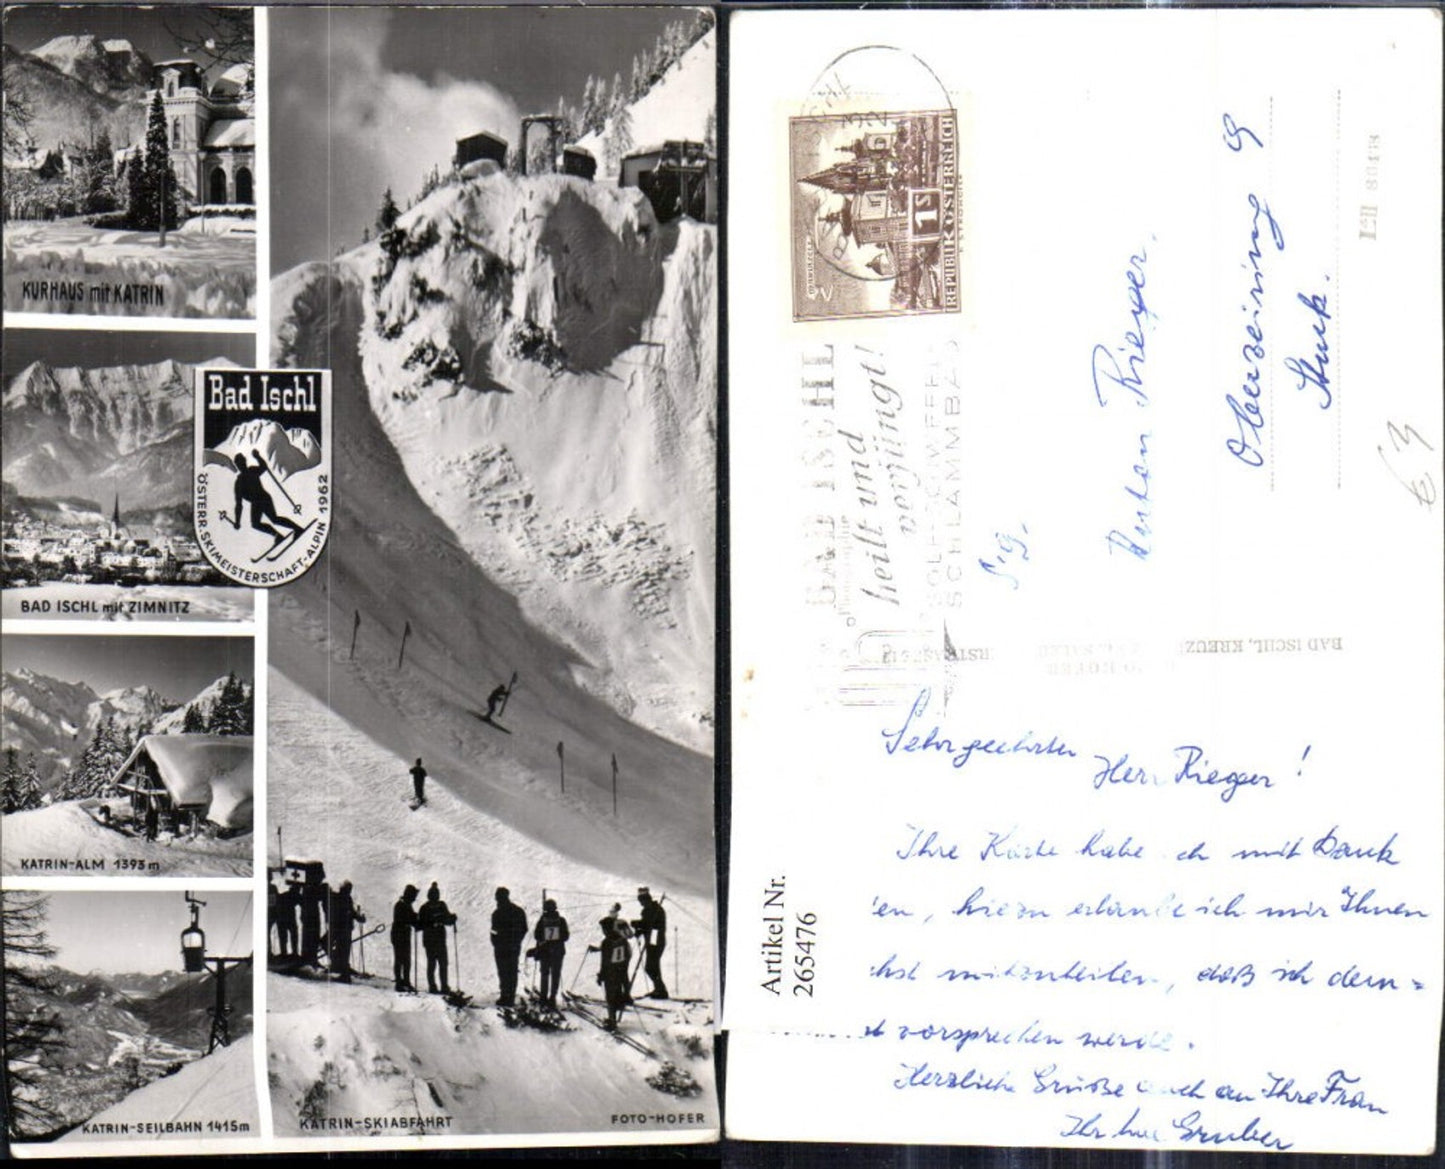 KURHAUS mit KATRIN
Bad Ischl
ÖSTERR. SKIMEISTERSCHAFT-ALPIN 1962
BAD ISCHL mit ZIMNITZ
KATRIN-ALM 1393 m
KATRIN-SEILBAHN 1415m
KATRIN-SKIABFAHRT
FOTO-HOFER
REPUBLIK ÖSTERREICH
1 S
BAD ISCHL
heilt und
verjüngt!
SCHLAMMBAD
Rieger.
BAD ISCHL, KREUZ
Sehr geehrter
Herr Rieger!
Ihre Karte habe ich mit Dank
en, hiezu erlaube ich mir Ihnen
chst mitzuteilen, daß ich dem=
t vorsprechen werde.
Herzliche Grüße auch an Ihre Frau
Ihr Gruber
Artikel Nr.
265476